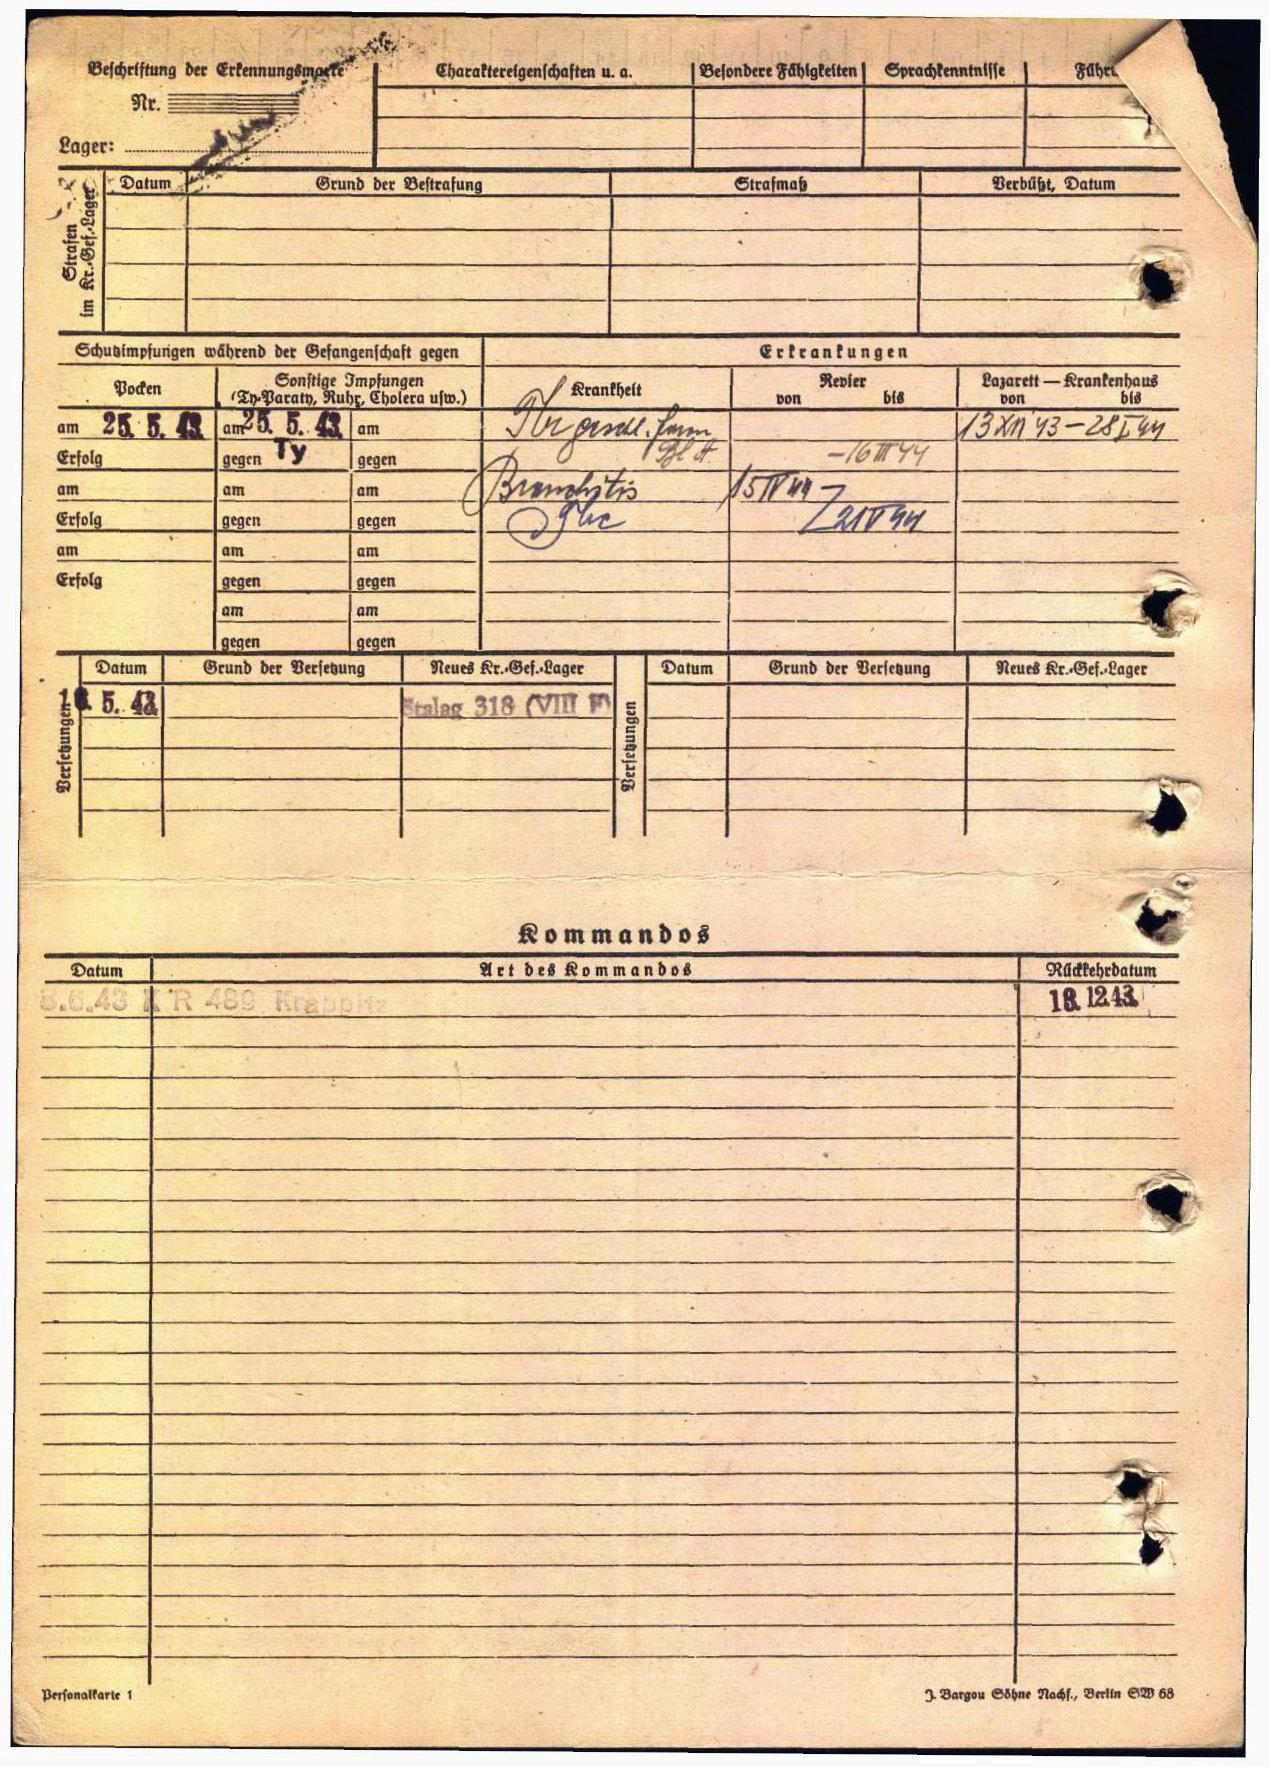 Beschriftung der Erkennungsmarke
Nr.
Lager:
Charaktereigenschaften u. a.
Besondere Fähigkeiten
Sprachkenntnisse
Führ
Strafen
im Kr.-Gef.-Lager
Datum
Grund der Bestrafung
Strafmaß
Verbüßt, Datum
Schutzimpfungen während der Gefangenschaft gegen
Erkrankungen
Pocken
Sonstige Impfungen
(Ty-Paraty, Ruhr, Cholera usw.)
Krankheit
Revier
von bis
Lazarett — Krankenhaus
von bis
am 25. 5. 43 am 25. 5. 43 am
13 XII 43 - 28 I 44
Erfolg gegen Ty gegen
- 16 III 44
am am am Bronchitis 15 IV 44 -
Erfolg gegen gegen Tbc 21 V 44
am am am
Erfolg gegen gegen
am am
gegen gegen
Versetzungen
Datum Grund der Versetzung Neues Kr.-Gef.-Lager
16. 5. 43 Stalag 318 (VIII F)
Versetzungen
Datum Grund der Versetzung Neues Kr.-Gef.-Lager
Kommandos
Datum Art des Kommandos Rückkehrdatum
8.6.43 R 489 Krappitz 13. 12. 43.
Personalkarte 1
J. Bargou Söhne Nachf., Berlin SW 68